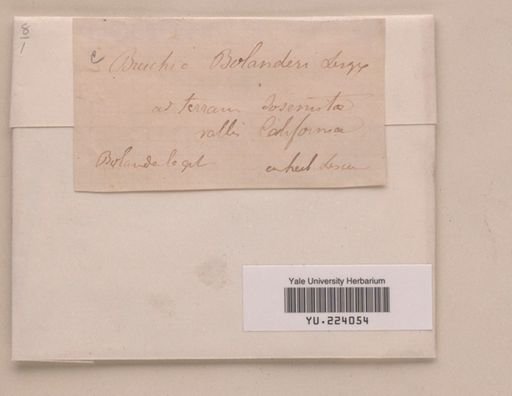 8
1
c Bolanderi Lesqx
ad terram Yosemita
vallis California
Bolander legit ex herb Lesq
Yale University Herbarium
YU.224054